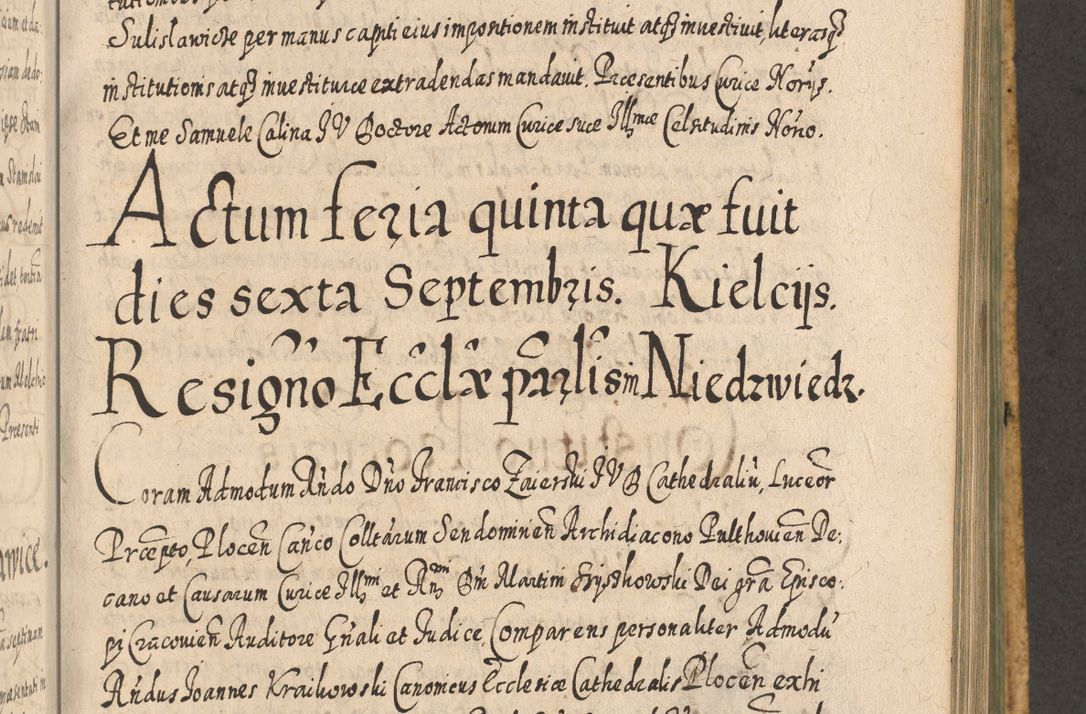 Sulislawice per manus capiti eius impositionem instituit atq3 investivit, literasq3
institutionis atq3 investituræ extradendas mandavit. Præsentibus Curiæ Norijs.
Et me Samuele Calina JV Doctore Actorum Curiæ suæ Illmæ Celsitudinis Nōrio.
Actum feria quinta quæ fuit
dies sexta Septembris. Kielcijs.
Resigñō Ecclæ pārlis in Niedzwiedz.
Coram Admodum Rñdo Dño Francisco Zaierski JVD Cathedraliũ, Luceor
Præpto, Plocen̄ Can̄co Colltārum Sendomirien̄ Archidiacono Pulthovien̄ De,
cano et Causarum Curiæ Illmi et Rmi Dñi Martini Szyszkowski Dei grā Episco,
pi Cracovien̄ Auditore Gñali et Judice. Comparens personaliter Admodũ
Rñdus Joannes Kraikowski Canonicus Ecclesiæ Cathedralis Plocen̄ exhi